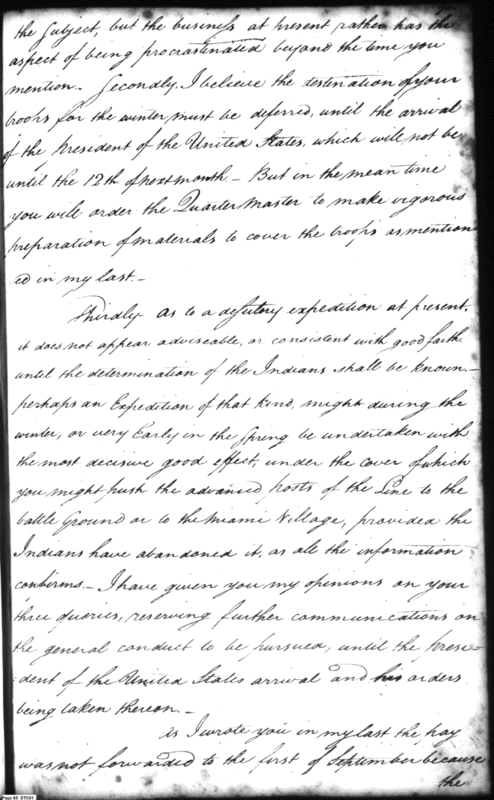 the Subject, but the business at present rather has the
aspect of being procrastinated beyond the time you
mention - Secondly, I believe the destination of your
troops for the winter must be deferred, until the arrival
of the President of the United States, which will not be
until the 12th of next month. - But in the mean time
you will order the Quarter Master to make vigorous
preparation of materials to cover the troops as mention
ed in my last. -
Thirdly - as to a desultory expedition at present,
it does not appear adviseable, or consistent with good faith
until the determination of the Indians shall be known -
perhaps an Expedition of that kind, might during the
winter, or very Early in the Spring be undertaken with
the most decisive good effect, under the cover of which
you might push the advanced posts of the Line to the
battle Ground or to the Miami Village, provided the
Indians have abandoned it, as all the information
confirms - I have given you my opinions on your
three queries, reserving further communications on
the general conduct to be pursued, until the Presi=
dent of the United States arrival and his orders
being taken thereon. -
As I wrote you in my last the pay
was not forwarded to the first of September because
the
Page 85 DTC01